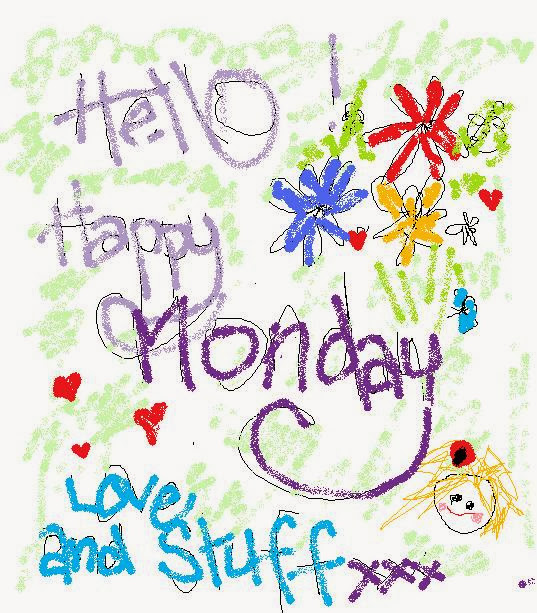 Hello!
Happy
Monday
Love,
and Stuff
xxx